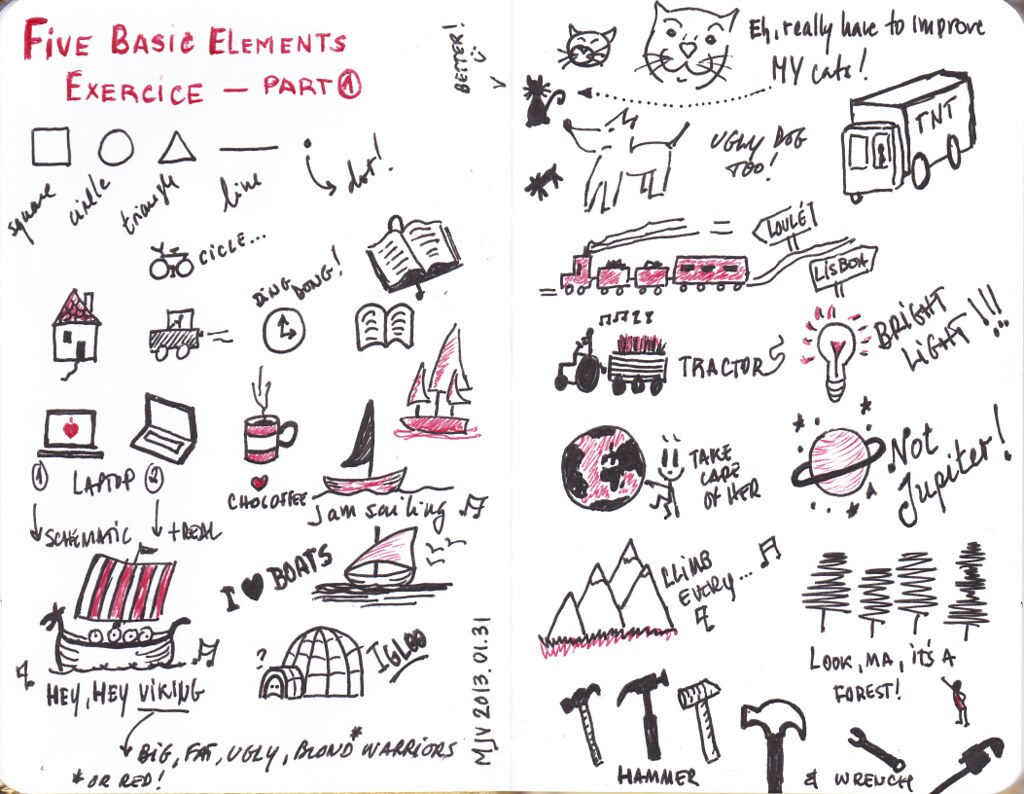 FIVE BASIC ELEMENTS
EXERCICE — PART 1
BETTER!
square
circle
triangle
line
dot!
CICLE...
DING
DONG!
1 LAPTOP 2
SCHEMATIC
+ REAL
CHOCOFFEE
I am sailing
I ♥ BOATS
HEY, HEY VIKING
?
IGLOO
BIG, FAT, UGLY, BLOND* WARRIORS
*OR RED!
MJV 2013.01.31
Eh, really have to improve
MY cats!
UGLY DOG
TOO!
TNT
LOULÉ
LISBOA
TRACTOR
BRIGHT
LIGHT!!!
TAKE
CARE
OF HER
Not
Jupiter!
CLIMB
EVERY...
LOOK, MA, it's A
FOREST!
HAMMER
& WRENCH